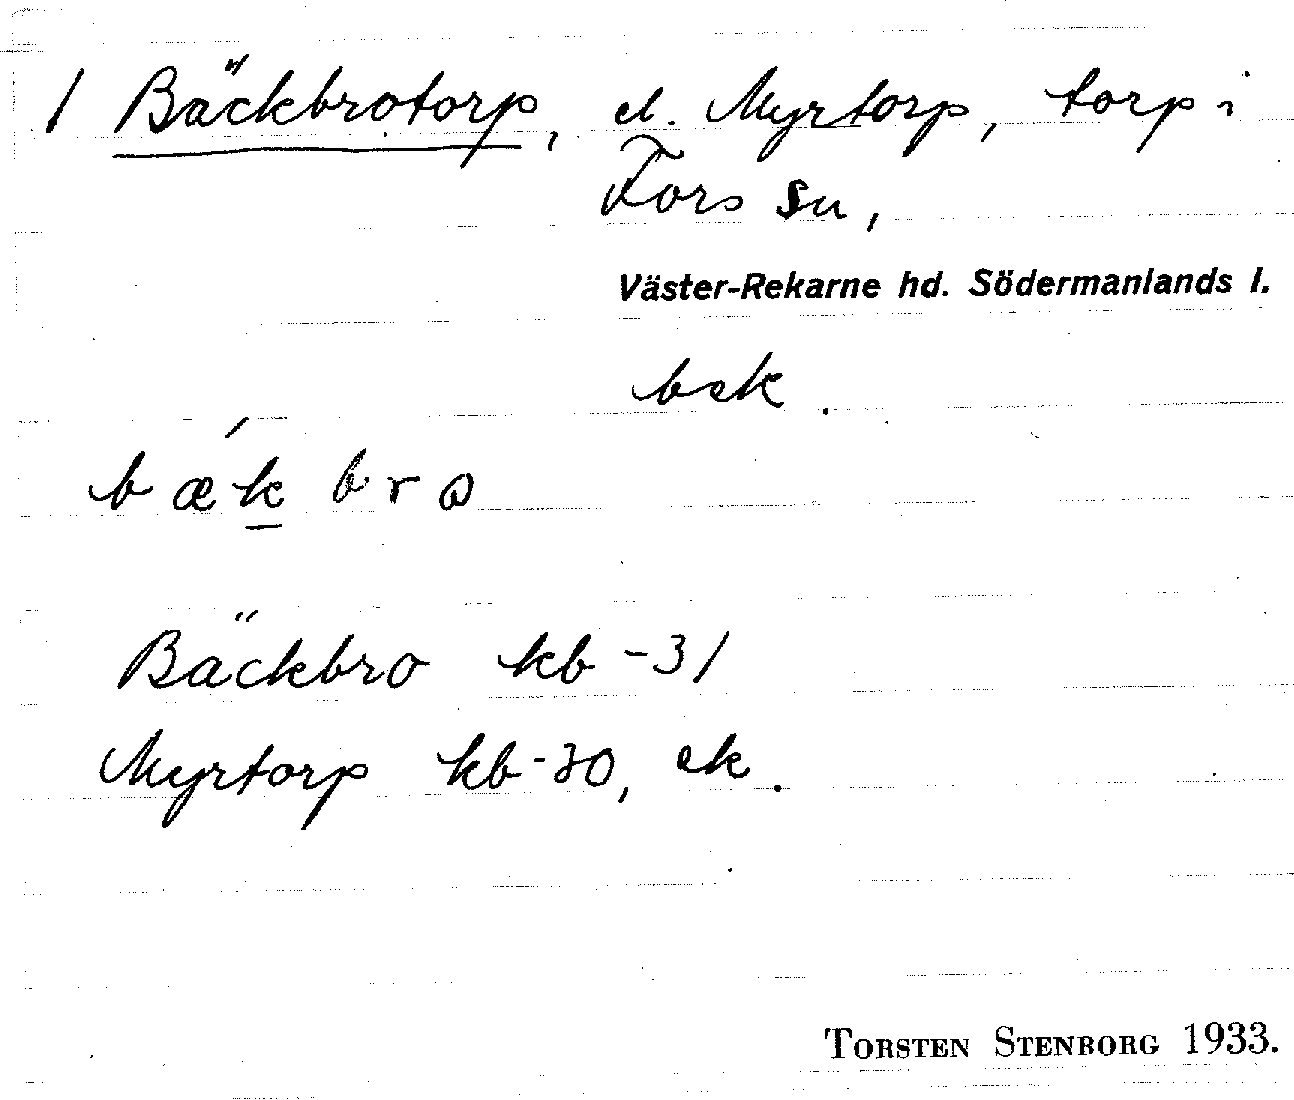 1 Bäckbrotorp, el. Myrtorp, torp i
Fors sn,
Väster-Rekarne hd. Södermanlands l.
bek.
bæ´k bro
Bäckbro kb -31
Myrtorp kb -30, ek.
TORSTEN STENBORG 1933.